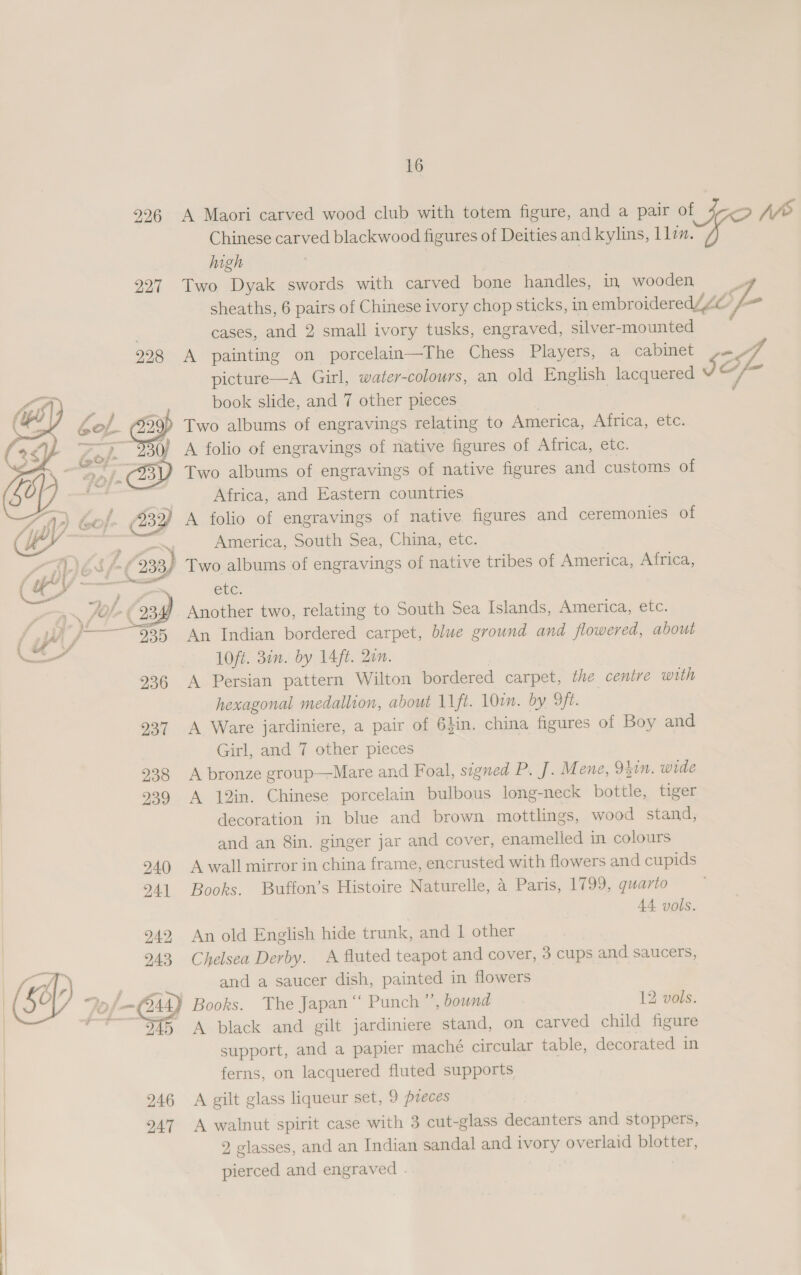 16
226 A Maori carved wood club with totem figure, and a pair of
Chinese carved blackwood figures of Deities and kylins, 11in.
high
227 Two Dyak swords with carved bone handles, in wooden
sheaths, 6 pairs of Chinese ivory chop sticks, in embroidered
cases, and 2 small ivory tusks, engraved, silver-mounted
228 A painting on porcelain—The Chess Players, a cabinet
picture—A Girl, water-colours, an old English lacquered
book slide, and 7 other pieces
60/- 229 Two albums of engravings relating to America, Africa, etc.
60/- 230 A folio of engravings of native figures of Africa, etc.
70/- 231 Two albums of engravings of native figures and customs of
Africa, and Eastern countries
60/- 232 A folio of engravings of native figures and ceremonies of
America, South Sea, China, etc.
233 Two albums of engravings of native tribes of America, Africa,
etc.
70/- 234 Another two, relating to South Sea Islands, America, etc.
235 An Indian bordered carpet, blue ground and flowered, about
10ft. 3in. by 14ft. 2in.
236 A Persian pattern Wilton bordered carpet, the centre with
hexagonal medallion, about 11ft. 10in. by 9ft.
237 A Ware jardiniere, a pair of 6½in. china figures of Boy and
Girl, and 7 other pieces
238 A bronze group—Mare and Foal, signed P. J. Mene, 9½in. wide
239 A 12in. Chinese porcelain bulbous long-neck bottle, tiger
decoration in blue and brown mottlings, wood stand,
and an 8in. ginger jar and cover, enamelled in colours
240 A wall mirror in china frame, encrusted with flowers and cupids
241 Books. Buffon's Histoire Naturelle, à Paris, 1799, quarto
44 vols.
242 An old English hide trunk, and 1 other
243 Chelsea Derby. A fluted teapot and cover, 3 cups and saucers,
and a saucer dish, painted in flowers
70/- 244 Books. The Japan "Punch", bound 12 vols.
245 A black and gilt jardiniere stand, on carved child figure
support, and a papier maché circular table, decorated in
ferns, on lacquered fluted supports
246 A gilt glass liqueur set, 9 pieces
247 A walnut spirit case with 3 cut-glass decanters and stoppers,
2 glasses, and an Indian sandal and ivory overlaid blotter,
pierced and engraved